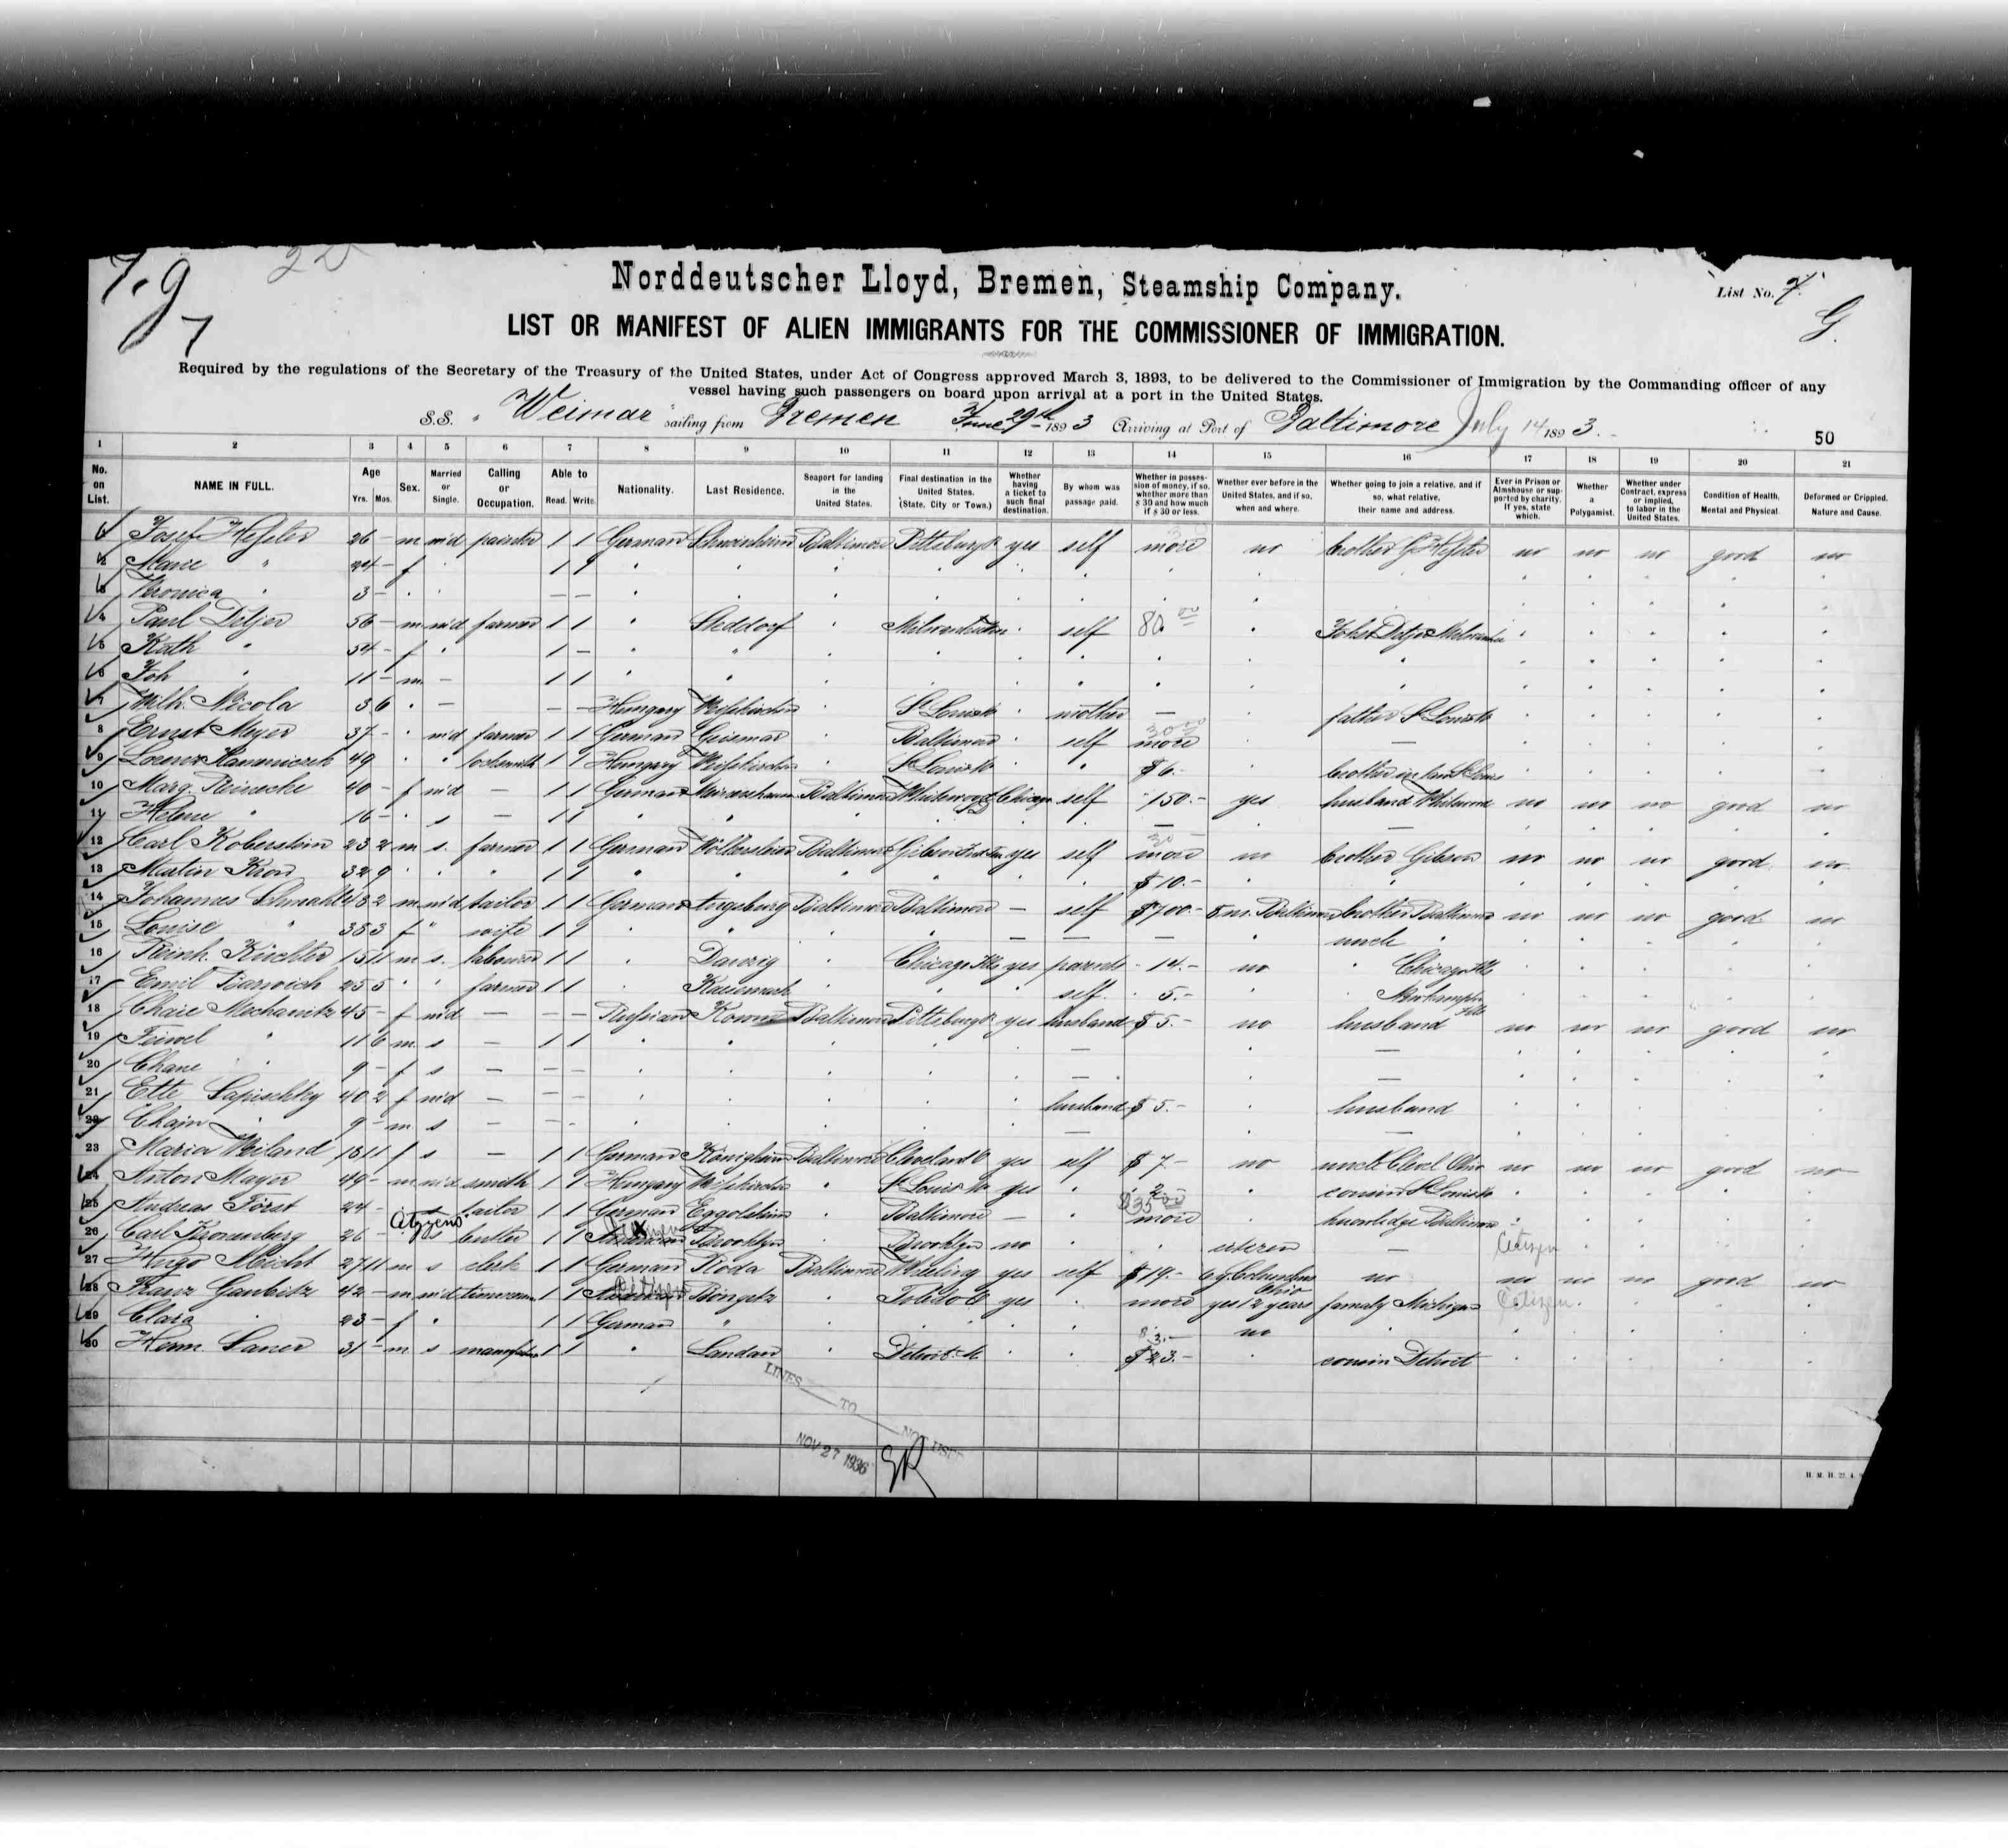 7.g
7
20
Norddeutscher Lloyd, Bremen, Steamship Company.
List No. 7.
G.
LIST OR MANIFEST OF ALIEN IMMIGRANTS FOR THE COMMISSIONER OF IMMIGRATION.
Required by the regulations of the Secretary of the Treasury of the United States, under Act of Congress approved March 3, 1893, to be delivered to the Commissioner of Immigration by the Commanding officer of any
vessel having such passengers on board upon arrival at a port in the United States.
S.S. "Weimar" sailing from Bremen June 29th 1893 Arriving at Port of Baltimore July 14 1893.
50
1 2 3 4 5 6 7 8 9 10 11 12 13 14 15 16 17 18 19 20 21
No. on List. NAME IN FULL. Age Yrs. Mos. Sex. Married or Single. Calling or Occupation. Able to Read. Write. Nationality. Last Residence. Seaport for landing in the United States. Final destination in the United States. (State, City or Town.) Whether having a ticket to such final destination. By whom was passage paid. Whether in possession of money, if so, whether more than $30 and how much if $30 or less. Whether ever before in the United States, and if so, when and where. Whether going to join a relative, and if so, what relative, their name and address. Ever in Prison or Almshouse or supported by charity. If yes, state which. Whether a Polygamist. Whether under Contract, express or implied, to labor in the United States. Condition of Health, Mental and Physical. Deformed or Crippled, Nature and Cause.
Josef 26 - m md painter 1 1 German Baltimore Pittsburgh yes self more no brother no no no good no
2 Marie " 24 - f 1 1
3 Veronica 3 - - -
4 Paul Detjer 56 - m md farmer 1 1 " Steddorf self 80.00
5 Kath " 54 - f " 1 -
6 Joh 11 - m. - 1 1
7 Wilh. Nicola 3 6 " - - - Hungary St Louis mother - father St Louis
8 Ernst Meyer 37 - " md farmer 1 1 German Geismar Baltimore self 30.00 more -
9 49 " " locksmith 1 1 Hungary St Louis " $6.- brother in law St Louis
10 Marg. Reinecke 40 - f md - 1 1 German Baltimore self 150.- yes husband no no no good no
11 Helene " 16 - " s - 1 1
12 Carl Koberstein 23 2 m s. farmer 1 1 German Baltimore Gibson yes self 30 more no brother Gibson no no no good no
13 Martin Kron 32 9 " " " 1 1 $10.-
14 Johannes 43 2 m md tailor 1 1 German Augsburg Baltimore Baltimore - self $700.- Baltimore brother Baltimore no no no good no
15 Louise " 38 3 f " wife 1 1 - - - uncle
16 Reinh. Küchler 15 11 m s. labourer 1 1 " Danzig " Chicago Ills yes parents 14.- no " Chicago Ills
17 Emil Barwich 25 5 " " farmer 1 1 self. 5.-
18 Chaie Mechanitz 45 - f md - - - Russian Kowno Baltimore Pittsburgh yes husband $5.- no husband no no no good no
19 Feiwel " 11 6 m s - 1 1 - -
20 Chane " 9 - f s - - - - -
21 Ette Lapischky 40 2 f md - - - husband $5.- husband
22 Chajn " 9 - m s - - - - -
23 Maria Weiland 18 11 f s - 1 1 German Baltimore Cleveland O yes self $7- no uncle Clevel Ohio no no no good no
24 Anton Mayer 49 - m md smith 1 1 Hungary " St Louis Mo yes " 2 cousin St Louis
25 Andreas Först 24 - s tailor 1 1 German Eggolsheim Baltimore - $35.00 more Baltimore
26 Carl Kronenburg 26 - Citizens s butler 1 1 Citizen Brooklyn Brooklyn no citizen - Citizen
27 Hugo Meicht 27 11 m s clerk 1 1 German Roda Baltimore Wheeling yes self $19.- Columbus Ohio no no no no good no
28 Franz Ganbitz 42 - m md 1 1 Citizen Toledo O yes more yes 12 years family Michigan Citizen
29 Clara " 23 - f " 1 1 German " no
30 Herm Laner 31 - m s 1 1 " Landau Detroit M. $23.- cousin Detroit
LINES TO NOT USED
NOV 27 1936
GR
H. M. H. 22. 4.